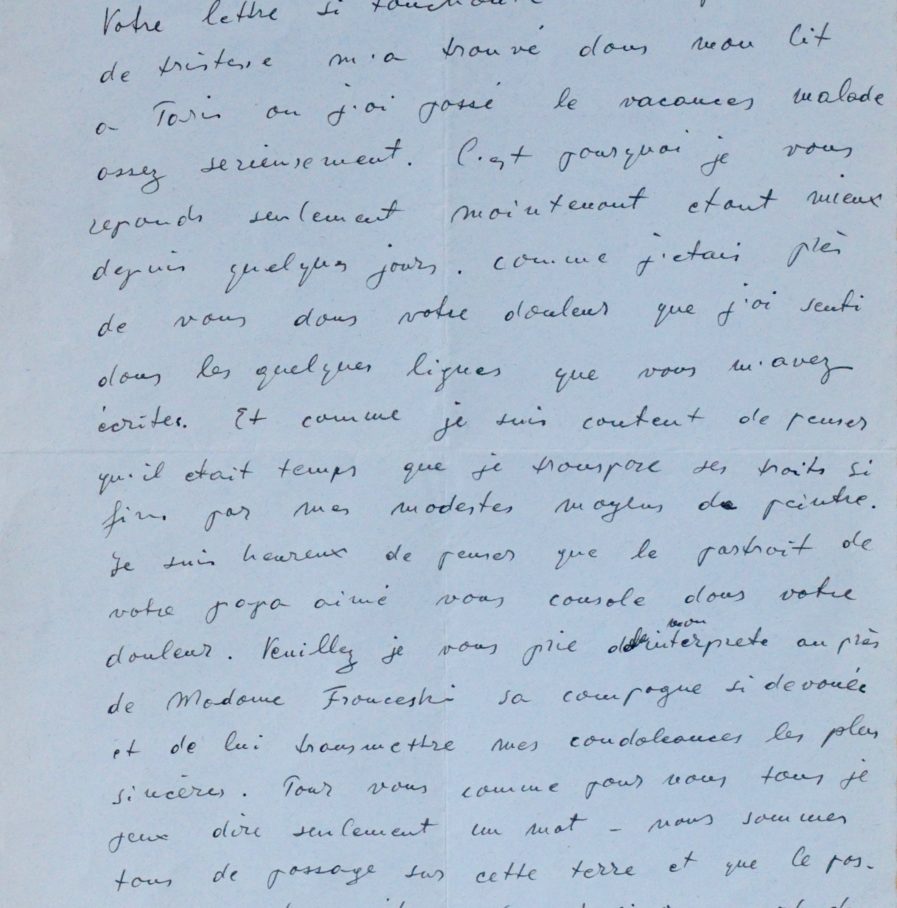 Votre lettre si touchante
de tristesse m'a trouvé dans mon lit
a Paris ou j'ai passé le vacances malade
assez serieusement. C'est pourquoi je vous
reponds seulement maintenant etant mieux
depuis quelques jours. Comme j'etais près
de vous dans votre douleur que j'ai senti
dans les quelques lignes que vous m'avez
écrites. Et comme je suis content de penser
qu'il etait temps que je transpose ses traits si
fins par mes modestes moyens de peintre.
Je suis heureux de penser que le portrait de
votre papa aimé vous console dans votre
douleur. Veuillez je vous prie mon interprete au près
de Madame Franceski sa compagne si devouée
et de lui transmettre mes condoleances les plus
sincères. Pour vous comme pour nous tous je
peux dire seulement un mot – nous sommes
tous de passage sur cette terre et que le pas-